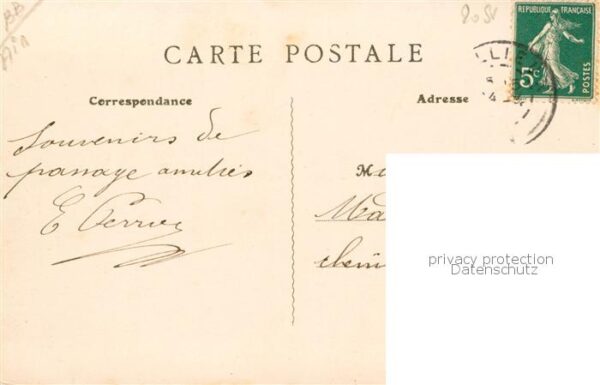 BB
Ain
REPUBLIQUE FRANÇAISE
5c
POSTES
CARTE POSTALE
Correspondance
Adresse
Souvenirs de
passage amitiés
E Perrier
M
Ma
chemi
privacy protection
Datenschutz